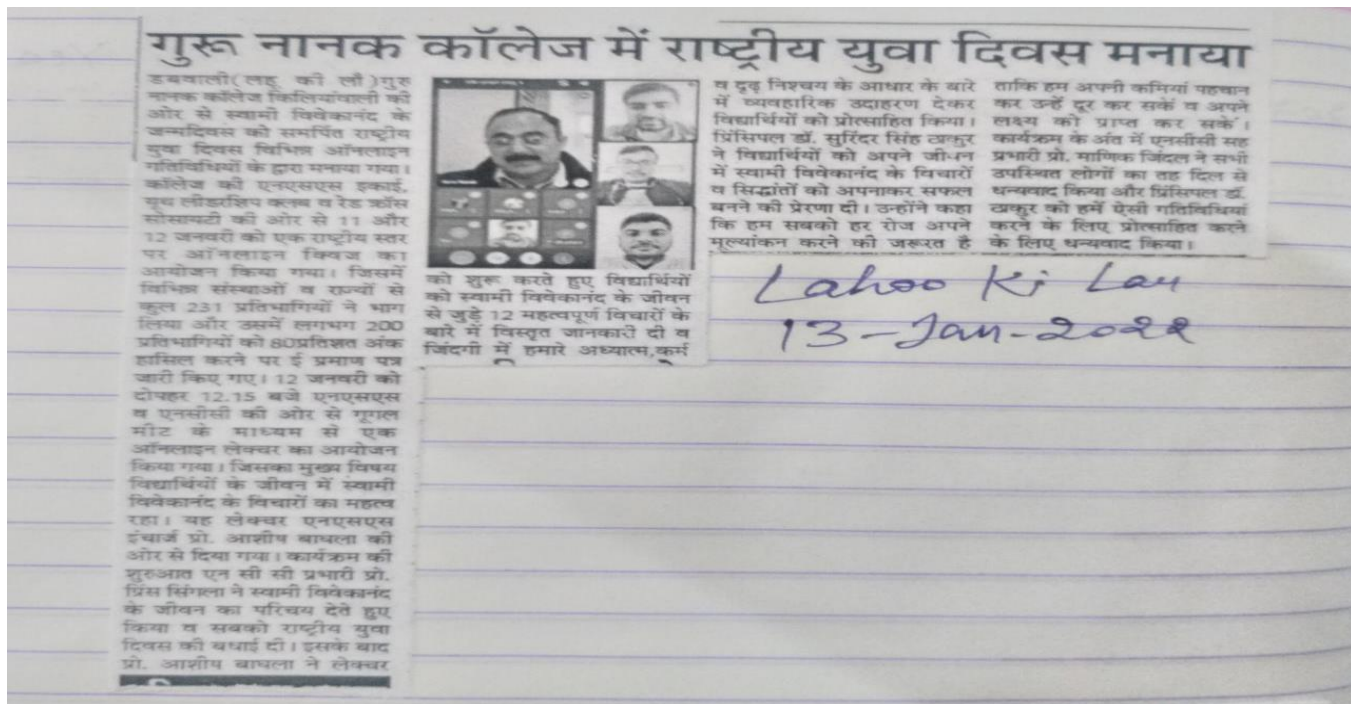 गुरू नानक कॉलेज में राष्ट्रीय युवा दिवस मनाया
डबवाली(लहू की लौ)गुरु
नानक कॉलेज किलियांवाली की
ओर से स्वामी विवेकानंद के
जन्मदिवस को समर्पित राष्ट्रीय
युवा दिवस विभिन्न ऑनलाइन
गतिविधियों के द्वारा मनाया गया।
कॉलेज की एनएसएस इकाई,
यूथ लीडरशिप क्लब व रेड क्रॉस
सोसायटी की ओर से 11 और
12 जनवरी को एक राष्ट्रीय स्तर
पर ऑनलाइन क्विज का
आयोजन किया गया। जिसमें
विभिन्न संस्थाओं व राज्यों से
कुल 231 प्रतिभागियों ने भाग
लिया और उसमें लगभग 200
प्रतिभागियों को 80प्रतिशत अंक
हासिल करने पर ई प्रमाण पत्र
जारी किए गए। 12 जनवरी को
दोपहर 12.15 बजे एनएसएस
व एनसीसी की ओर से गूगल
मीट के माध्यम से एक
ऑनलाइन लेक्चर का आयोजन
किया गया। जिसका मुख्य विषय
विद्यार्थियों के जीवन में स्वामी
विवेकानंद के विचारों का महत्व
रहा। यह लेक्चर एनएसएस
इंचार्ज प्रो. आशीष बाघला की
ओर से दिया गया। कार्यक्रम की
शुरुआत एन सी सी प्रभारी प्रो.
प्रिंस सिंगला ने स्वामी विवेकानंद
के जीवन का परिचय देते हुए
किया व सबको राष्ट्रीय युवा
दिवस की बधाई दी। इसके बाद
प्रो. आशीष बाघला ने लेक्चर
को शुरू करते हुए विद्यार्थियों
को स्वामी विवेकानंद के जीवन
से जुड़े 12 महत्वपूर्ण विचारों के
बारे में विस्तृत जानकारी दी व
जिंदगी में हमारे अध्यात्म,कर्म
व दृढ़ निश्चय के आधार के बारे
में व्यवहारिक उदाहरण देकर
विद्यार्थियों को प्रोत्साहित किया।
प्रिंसिपल डॉ. सुरिंदर सिंह ठाकुर
ने विद्यार्थियों को अपने जीवन
में स्वामी विवेकानंद के विचारों
व सिद्धांतों को अपनाकर सफल
बनने की प्रेरणा दी। उन्होंने कहा
कि हम सबको हर रोज अपने
मूल्यांकन करने की जरूरत है
ताकि हम अपनी कमियां पहचान
कर उन्हें दूर कर सकें व अपने
लक्ष्य को प्राप्त कर सकें।
कार्यक्रम के अंत में एनसीसी सह
प्रभारी प्रो. माणिक जिंदल ने सभी
उपस्थित लोगों का तह दिल से
धन्यवाद किया और प्रिंसिपल डॉ.
ठाकुर को हमें ऐसी गतिविधियां
करने के लिए प्रोत्साहित करने
के लिए धन्यवाद किया।
Lahoo Ki Lau
13-Jan-2022